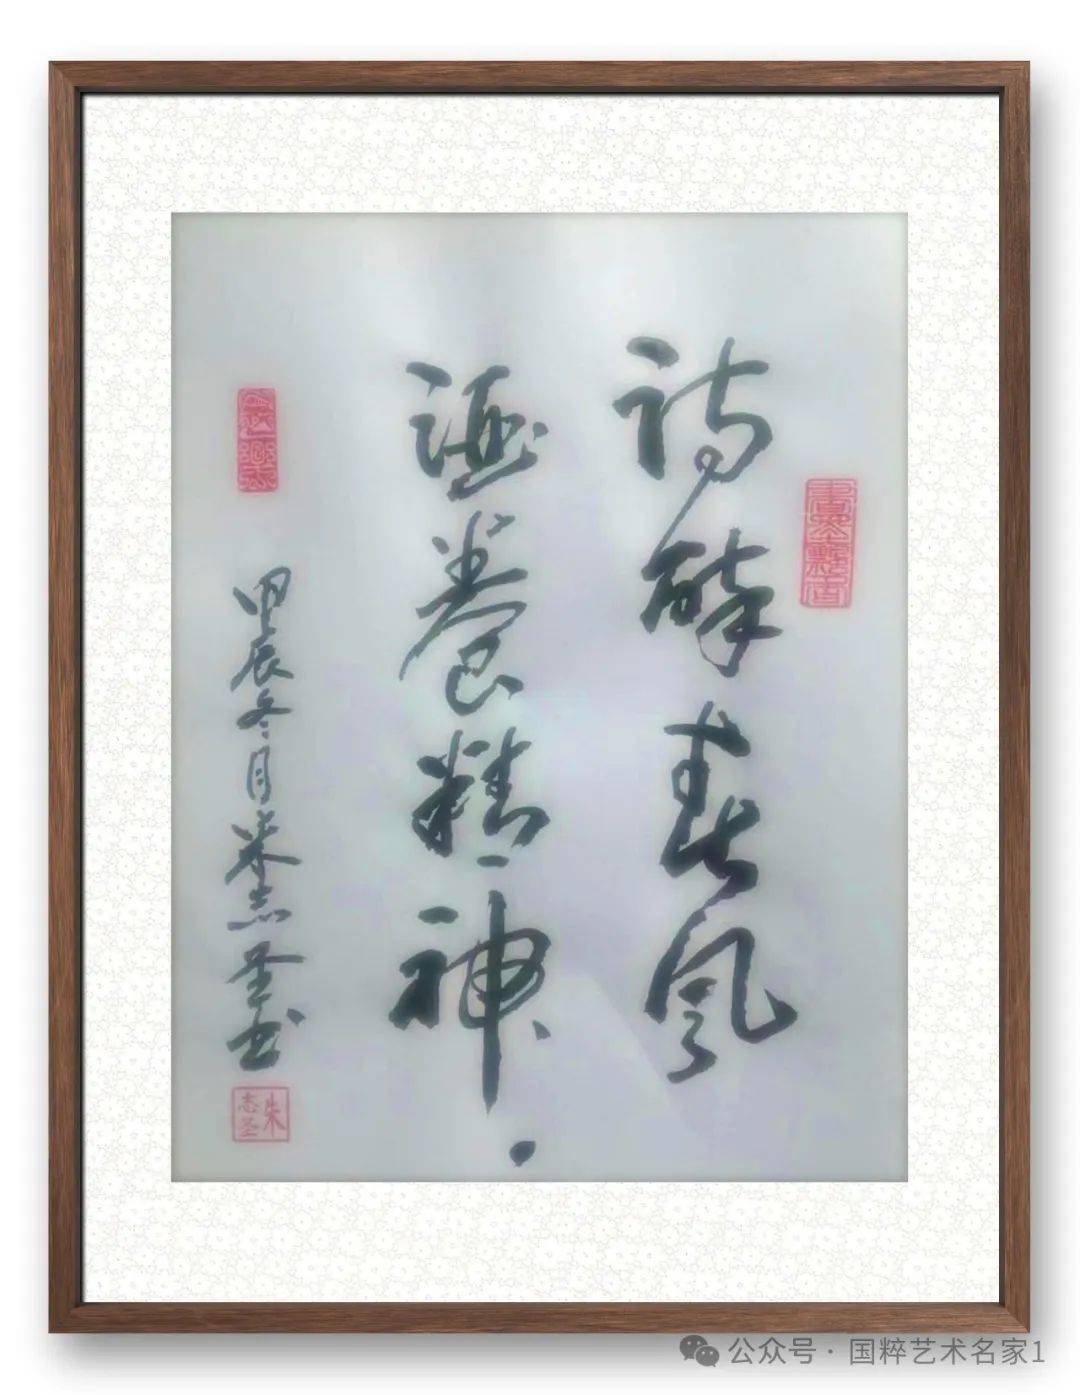 诗醉春风
涵養精神
甲辰冬月朱志圣书
朱志圣
公众号 · 国粹艺术名家1